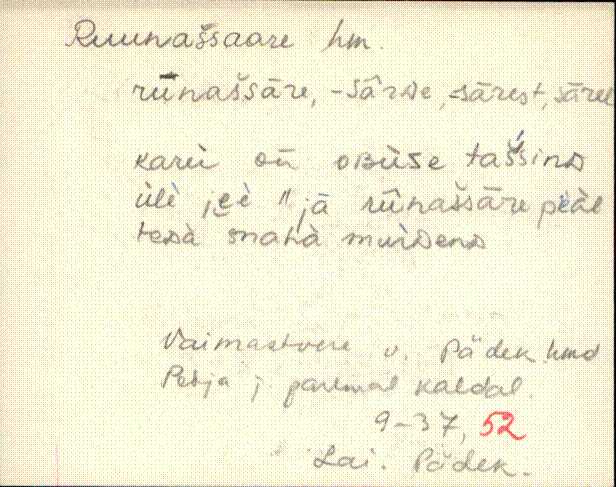 Ruunaššaare hm.
rūnaššāre, -šārᴅe, -šārest, šāree
karù on oʙùse tašsinᴅ
ülè jɛè " jā rūnaššāre pèäl
teᴅà mahà muròenᴅ
Vaimastvere v. Pädek hmd
Pedja j paremal kaldal.
9-37, 52
Lai. Pädek.